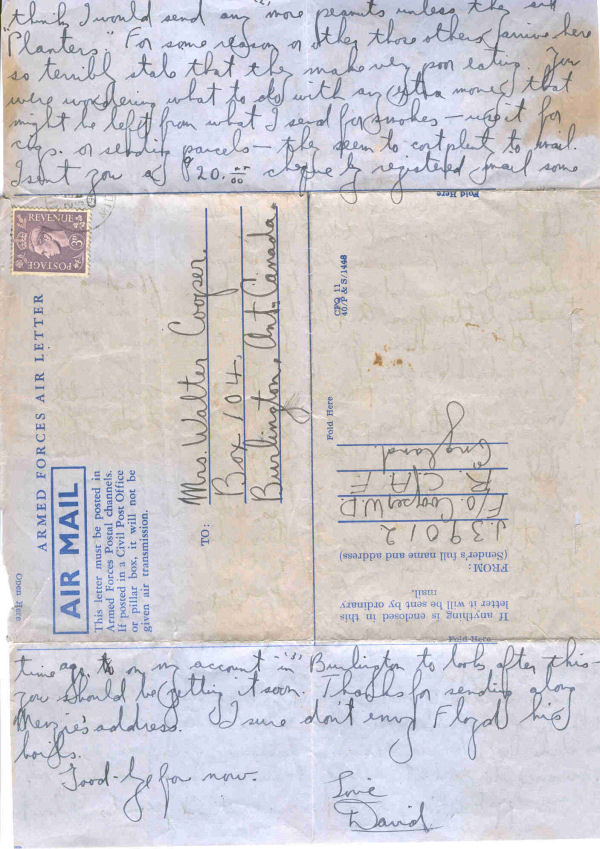 think I would send any more peanuts unless they are
"Planters." For some reason or other those others arrive here
so terribly stale that they make very poor eating. You
were wondering what to do with any extra money that
might be left from what I send for smokes – use it for
cigs. or sending parcels – they seem to cost plenty to mail.
I sent you a $20.00 cheque by registered mail some
Fold Here
REVENUE
3D
POSTAGE
ARMED FORCES AIR LETTER
AIR MAIL
This letter must be posted in
Armed Forces Postal channels.
If posted in a Civil Post Office
or pillar box, it will not be
given air transmission.
Open Here
TO:
Mrs. Walter Cooper.
Box 104,
Burlington, Ont. Canada.
CPO 11
40/P & S/1448
Fold Here
If anything is enclosed in this
letter it will be sent by ordinary
mail.
FROM:
(Sender's full name and address)
J.39012
F/O. Cooper W.D
R.C.A.F.
England.
Fold Here
time ago, on my account in Burlington to look after this –
you should be getting it soon. Thanks for sending along
Menzie's address. I sure don't envy Floyd his
boils.
Good-bye for now.
Love
David.